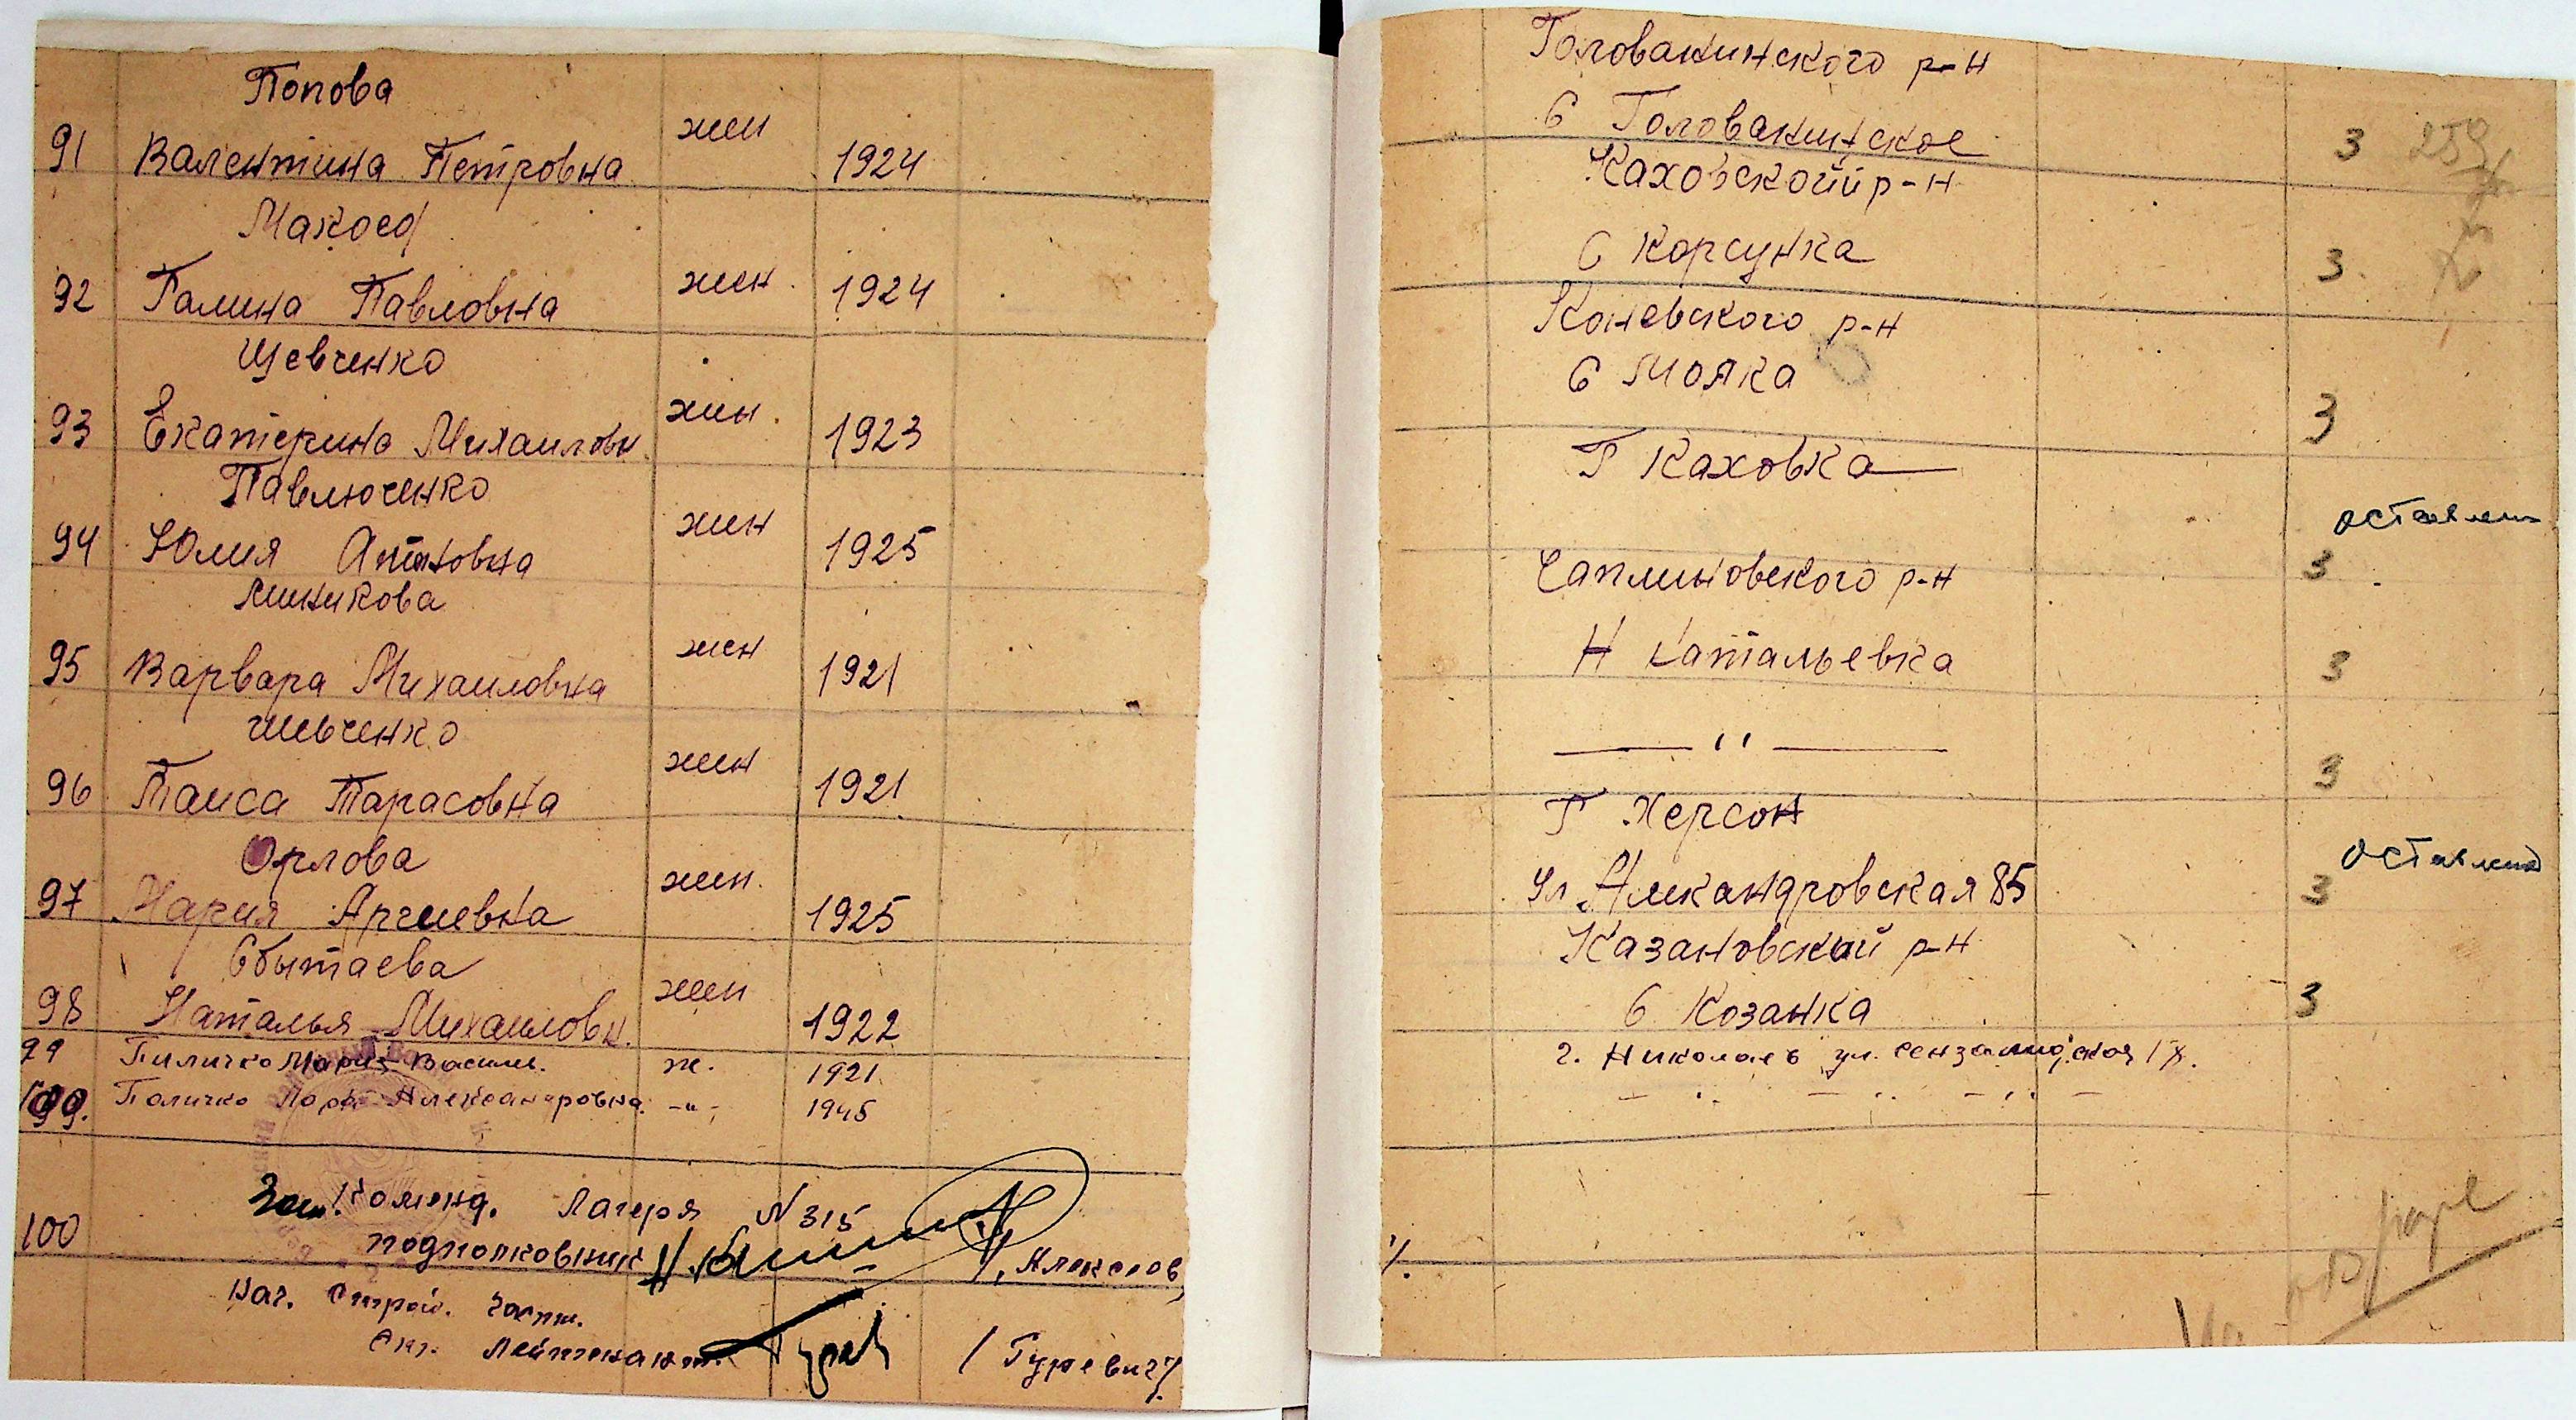 Попова
91 Валентина Петровна жен 1924
Макоед
92 Галина Павловна жен. 1924
Шевченко
93 Екатерина Михаиловн. жен. 1923
Павлюченко
94 Юлия Антоновна жен 1925
Линикова
95 Варвара Михаиловна жен 1921
Шевченко
96 Таиса Тарасовна жен 1921
Орлова
97 Мария жен. 1925
Сбытаева
98 Наталья Михаиловн. жен 1922
99 Мария Василь. ж. 1921
Александровна. -"- 1945
Зам. Команд. Лагеря N 315
100 подполковник
Нач. Строй. Части.
Ст. Лейтенант. / Гуревич /
Головакинского р-н
С Головакинское 3
Каховской р-н
С Корсунка 3.
Каневского р-н
С Мояка 3
Г Каховка
оставлена
Чаплиновского р-н 3
Н Натальевка 3
— " — 3
Г Херсон
оставлена
Ул Алекандровская 85 3
Казановский р-н
С Козанка 3
г. Николаев ул.
— " — " — " —